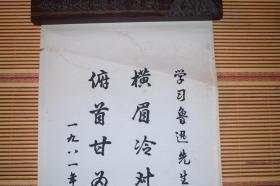 学习鲁迅先生
横眉冷对
俯首甘为
一九八一年